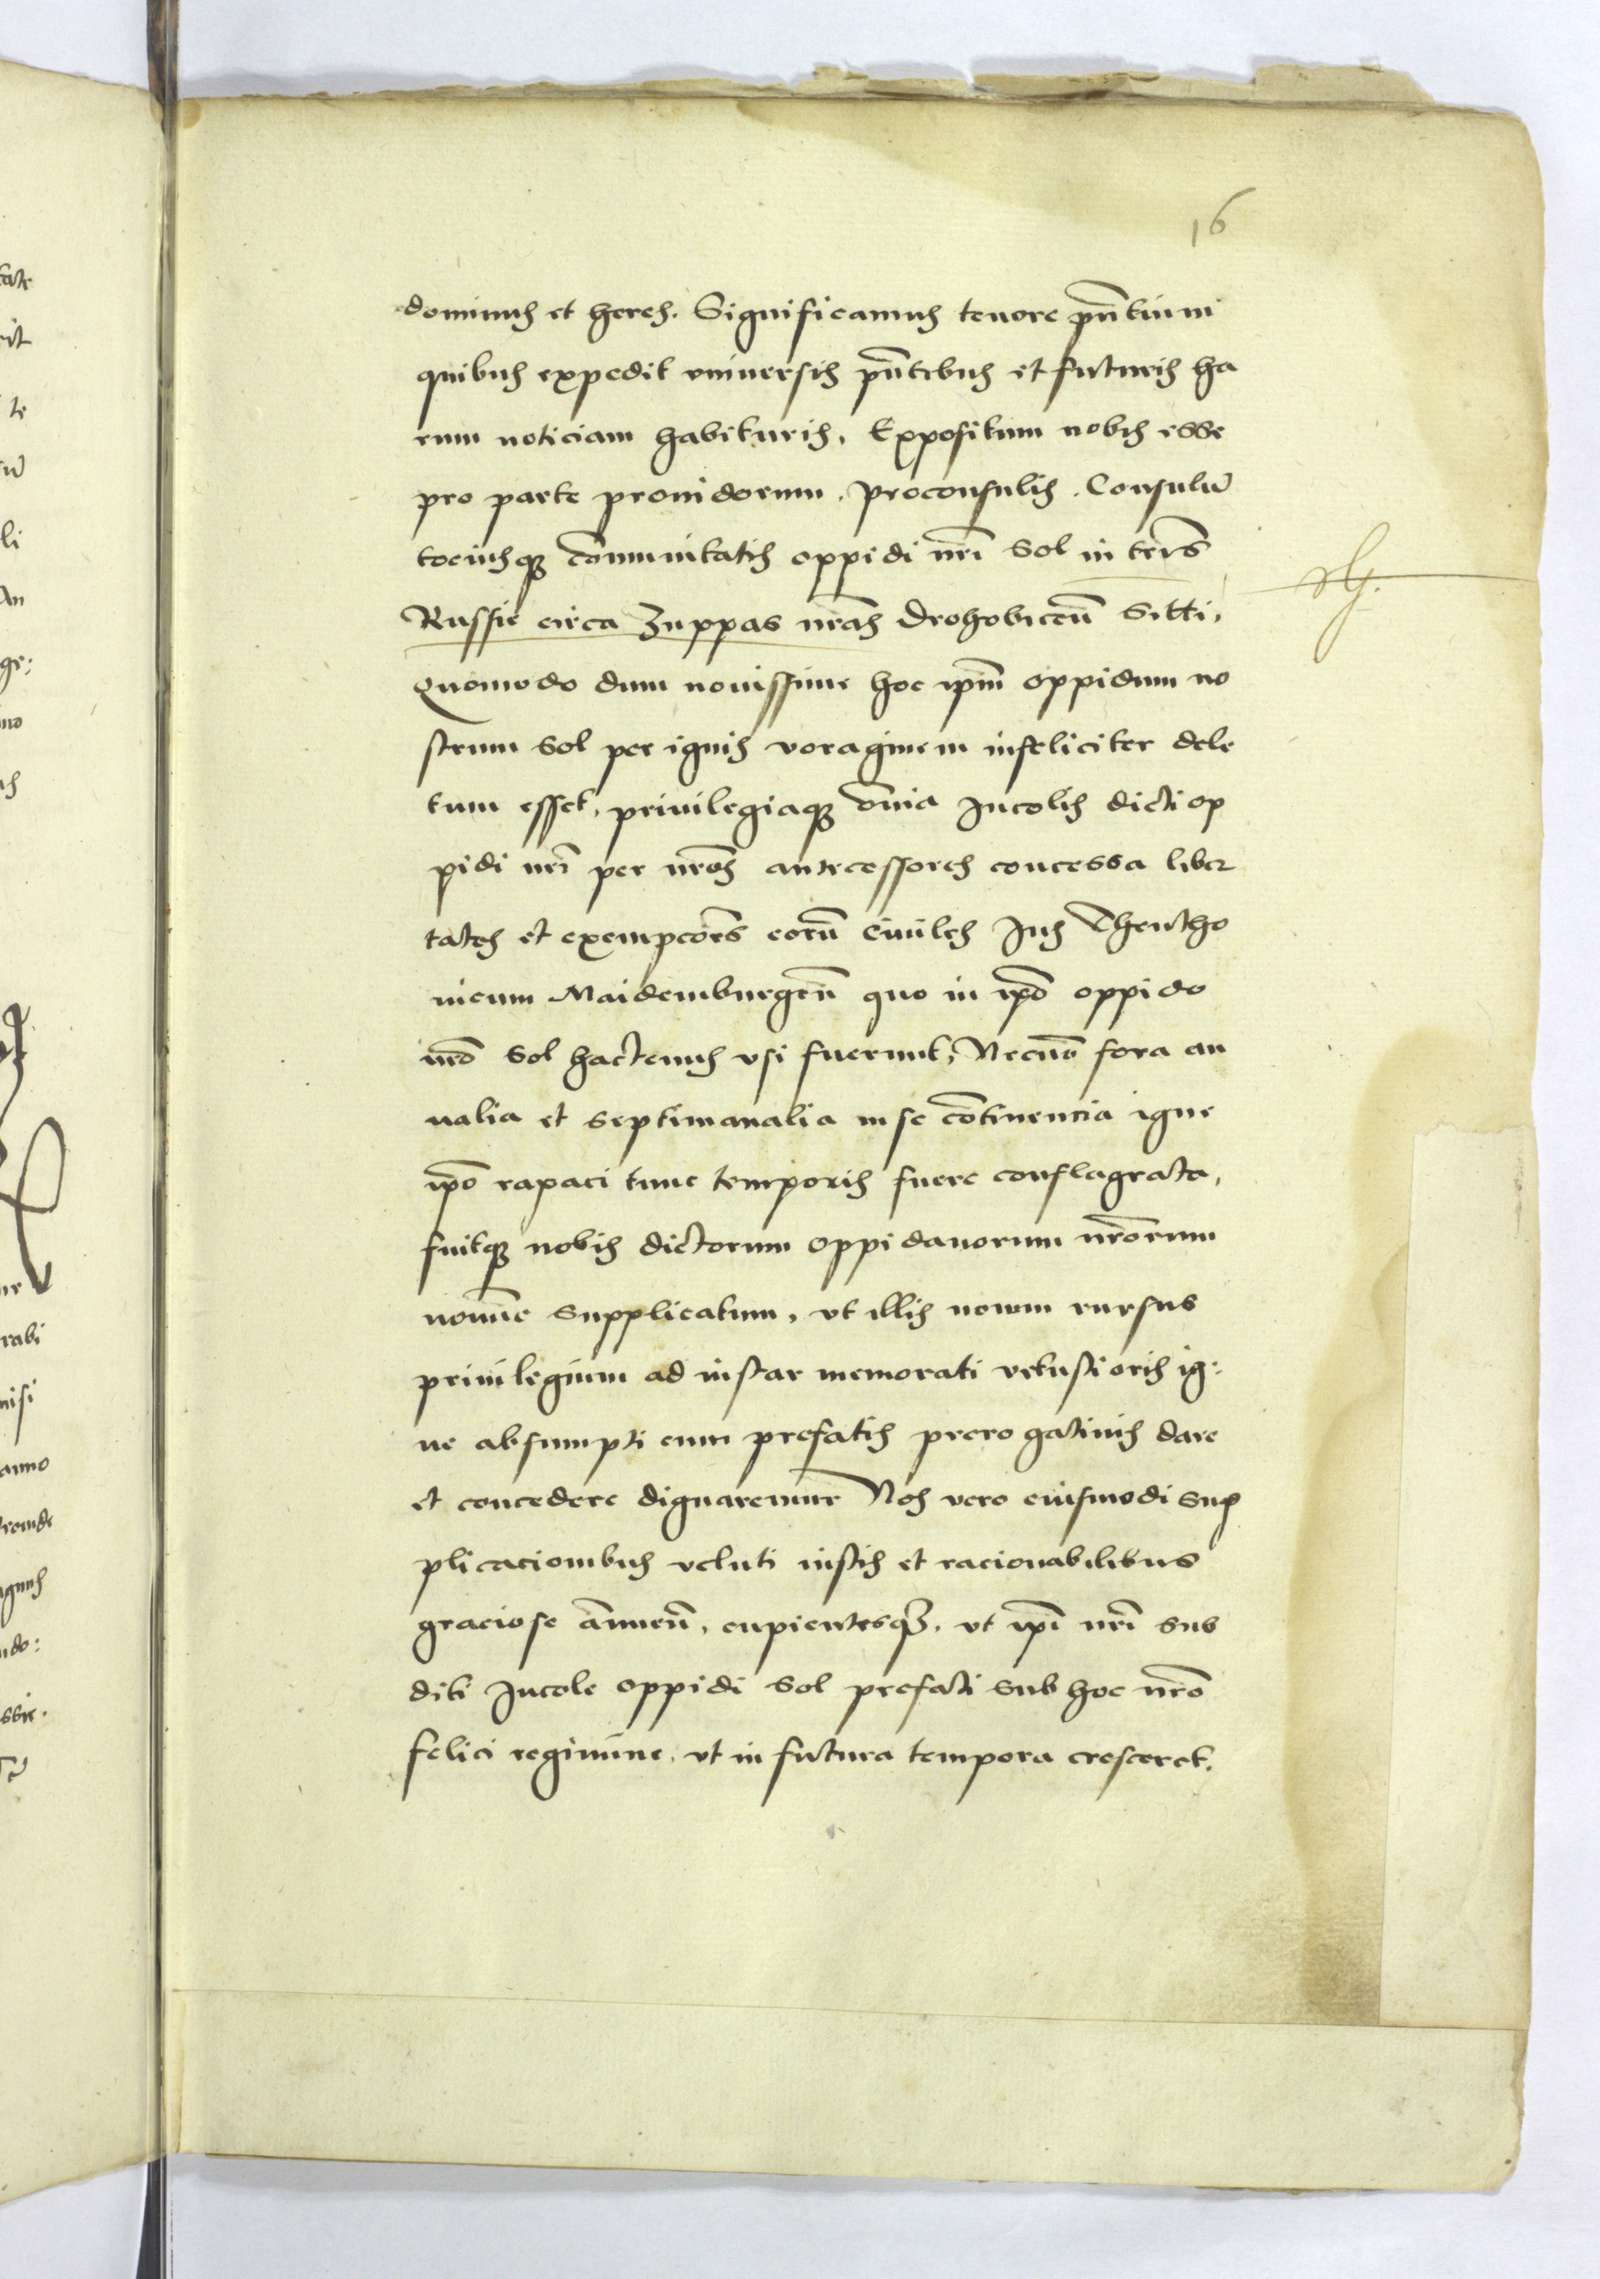 16
dominus et heres. Significamus tenore pn̄tium
quibus expedit vniuersis pn̄tibus et futuris ha
rum noticiam habituris, Expositum nobis esse
pro parte prouidorum, proconsulis, Consulū
tociusq̳ cōmunitatis oppidi nrī Sol in terrīs
Russie circa Zuppas nrās Drohobiceñ Sitti,
Quomodo dum nouissime hoc ipm̄ oppidum no
strum Sol per ignis voraginem infeliciter dele
tum esset, priuilegiaq̳ om̄ia Incolis dicti op
pidi nrī per nrōs antecessores concessa liber
tates et exempcōēs eorū Ciuiles Jus Theutho
nicum Maidemburgeñ quo in ipō oppido
nrō Sol hactenus vsi fuerunt, Necnō fora an
nalia et septimanalia in se cōtinencia igne
ipō rapaci tunc temporis fuere conflagrata,
fuitq̳ nobis dictorum oppidanorum nrōrum
nomīe supplicatum, vt illis nouum rursus
priuilegium ad instar memorati vetustioris ig:
ne absumpti cum prefatis prerogatiuis dare
et concedere dignaremur Nos vero eiusmodi sup
plicacionibus veluti iustis et racionabilibus
graciose ānueñ, cupientesq̳, vt ipī nrī sub
diti Incole oppidi Sol prefati sub hoc nrō
felici regimine, vt in futura tempora cresceret,